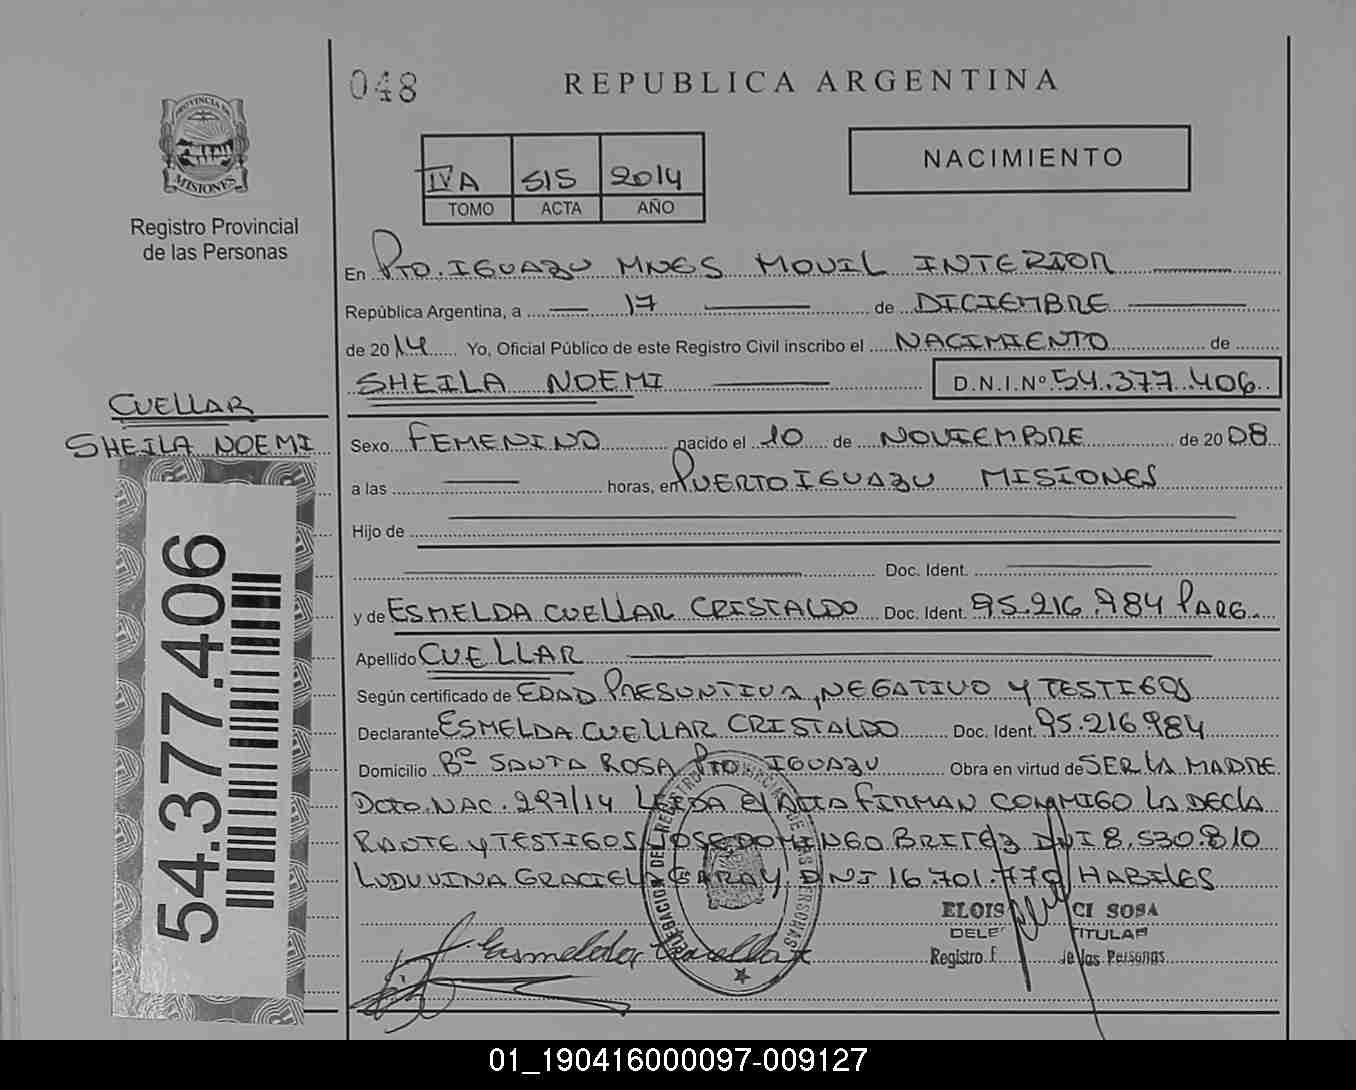 048
REPUBLICA ARGENTINA
PROVINCIA DE
MISIONES
Registro Provincial
de las Personas
NACIMIENTO
IVA SIS 2014
TOMO ACTA AÑO
En PTO. IGUAZU MNES MOVIL INTERIOR
República Argentina, a 17 de DICIEMBRE
de 2014 Yo, Oficial Público de este Registro Civil inscribo el NACIMIENTO de
SHEILA NOEMI D.N.I.Nº 54.377.406
CUELLAR
SHEILA NOEMI
Sexo FEMENINO nacido el 10 de NOVIEMBRE de 2008
a las horas, en PUERTO IGUAZU MISIONES
Hijo de
Doc. Ident.
y de ESMELDA CUELLAR CRISTALDO Doc. Ident. 95.216.984 PARG.
Apellido CUELLAR
Según certificado de EDAD PRESUNTIVA, NEGATIVO Y TESTIGOS
Declarante ESMELDA CUELLAR CRISTALDO Doc. Ident. 95.216.984
Domicilio Bº SANTA ROSA PTO IGUAZU Obra en virtud de SER LA MADRE
DCTO. NAC. 297/14 LEIDA EL ACTA FIRMAN CONMIGO LA DECLA
RANTE Y TESTIGOS JOSE DOMINGO BRITEZ DNI 8.530.810
LUDUVINA GRACIELA GARAY DNI 16.701.770 HABILES
54.377.406
ELOIS CI SOSA
DELE TITULAR
Registro de las Personas
Esmelda Cuellar
01_190416000097-009127